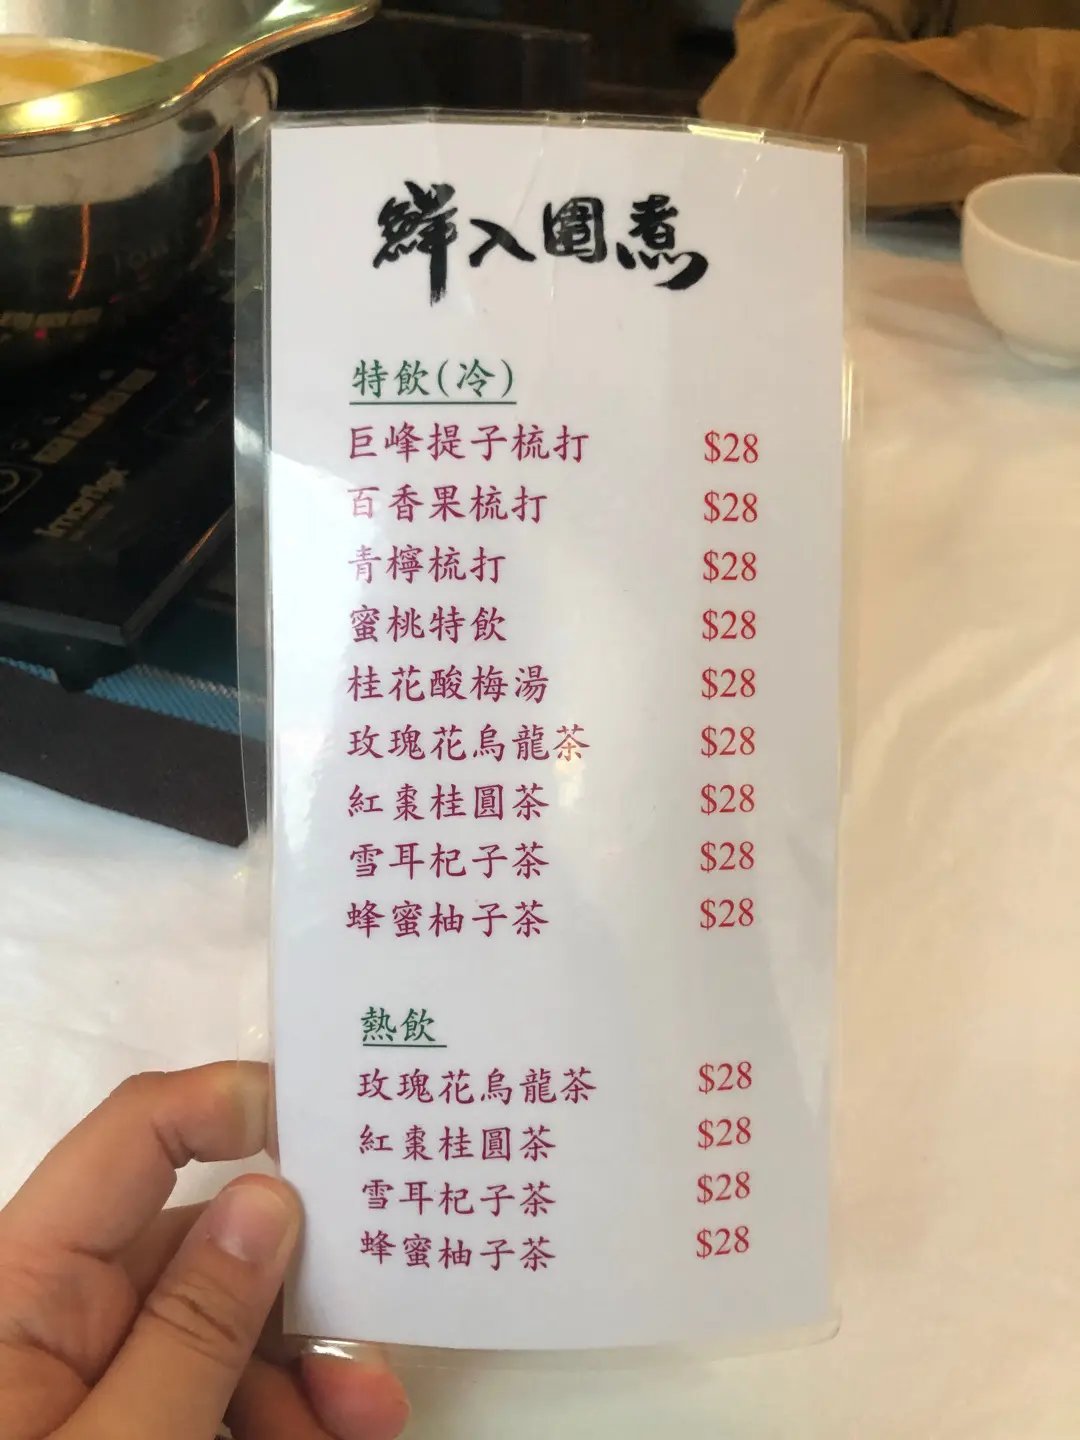 鮮入圍煮
特飲(冷)
巨峰提子梳打 $28
百香果梳打 $28
青檸梳打 $28
蜜桃特飲 $28
桂花酸梅湯 $28
玫瑰花烏龍茶 $28
紅棗桂圓茶 $28
雪耳杞子茶 $28
蜂蜜柚子茶 $28
熱飲
玫瑰花烏龍茶 $28
紅棗桂圓茶 $28
雪耳杞子茶 $28
蜂蜜柚子茶 $28